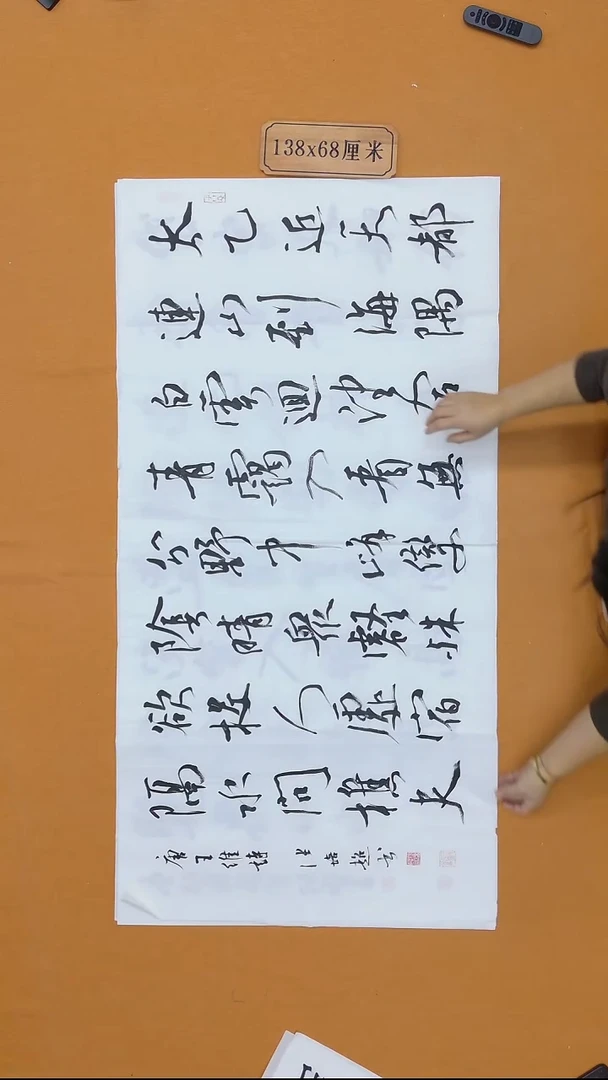 138x68厘米
太乙近天都
連山到海隅
白雲迴望合
青靄入看無
分野中峰變
陰晴眾壑殊
欲投人處宿
隔水問樵夫
唐王維詩